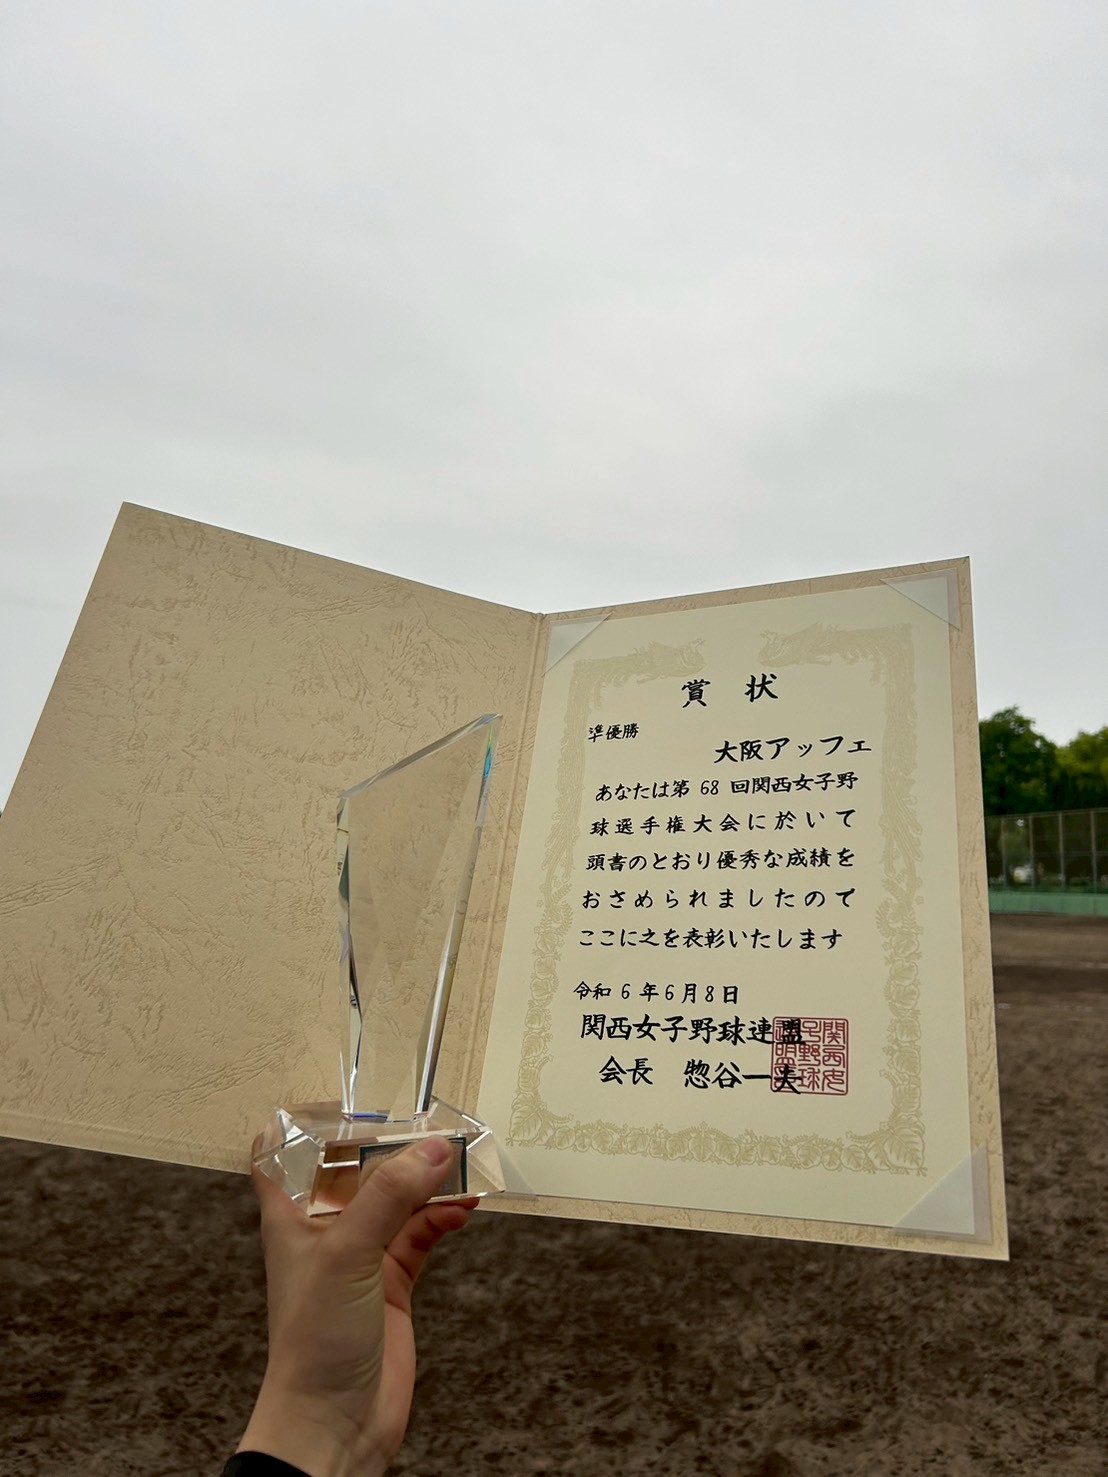 賞状
準優勝
大阪アッフェ
あなたは第68回関西女子野
球選手権大会に於いて
頭書のとおり優秀な成績を
おさめられましたので
ここに之を表彰いたします
令和6年6月8日
関西女子野球連盟
会長 惣谷一夫